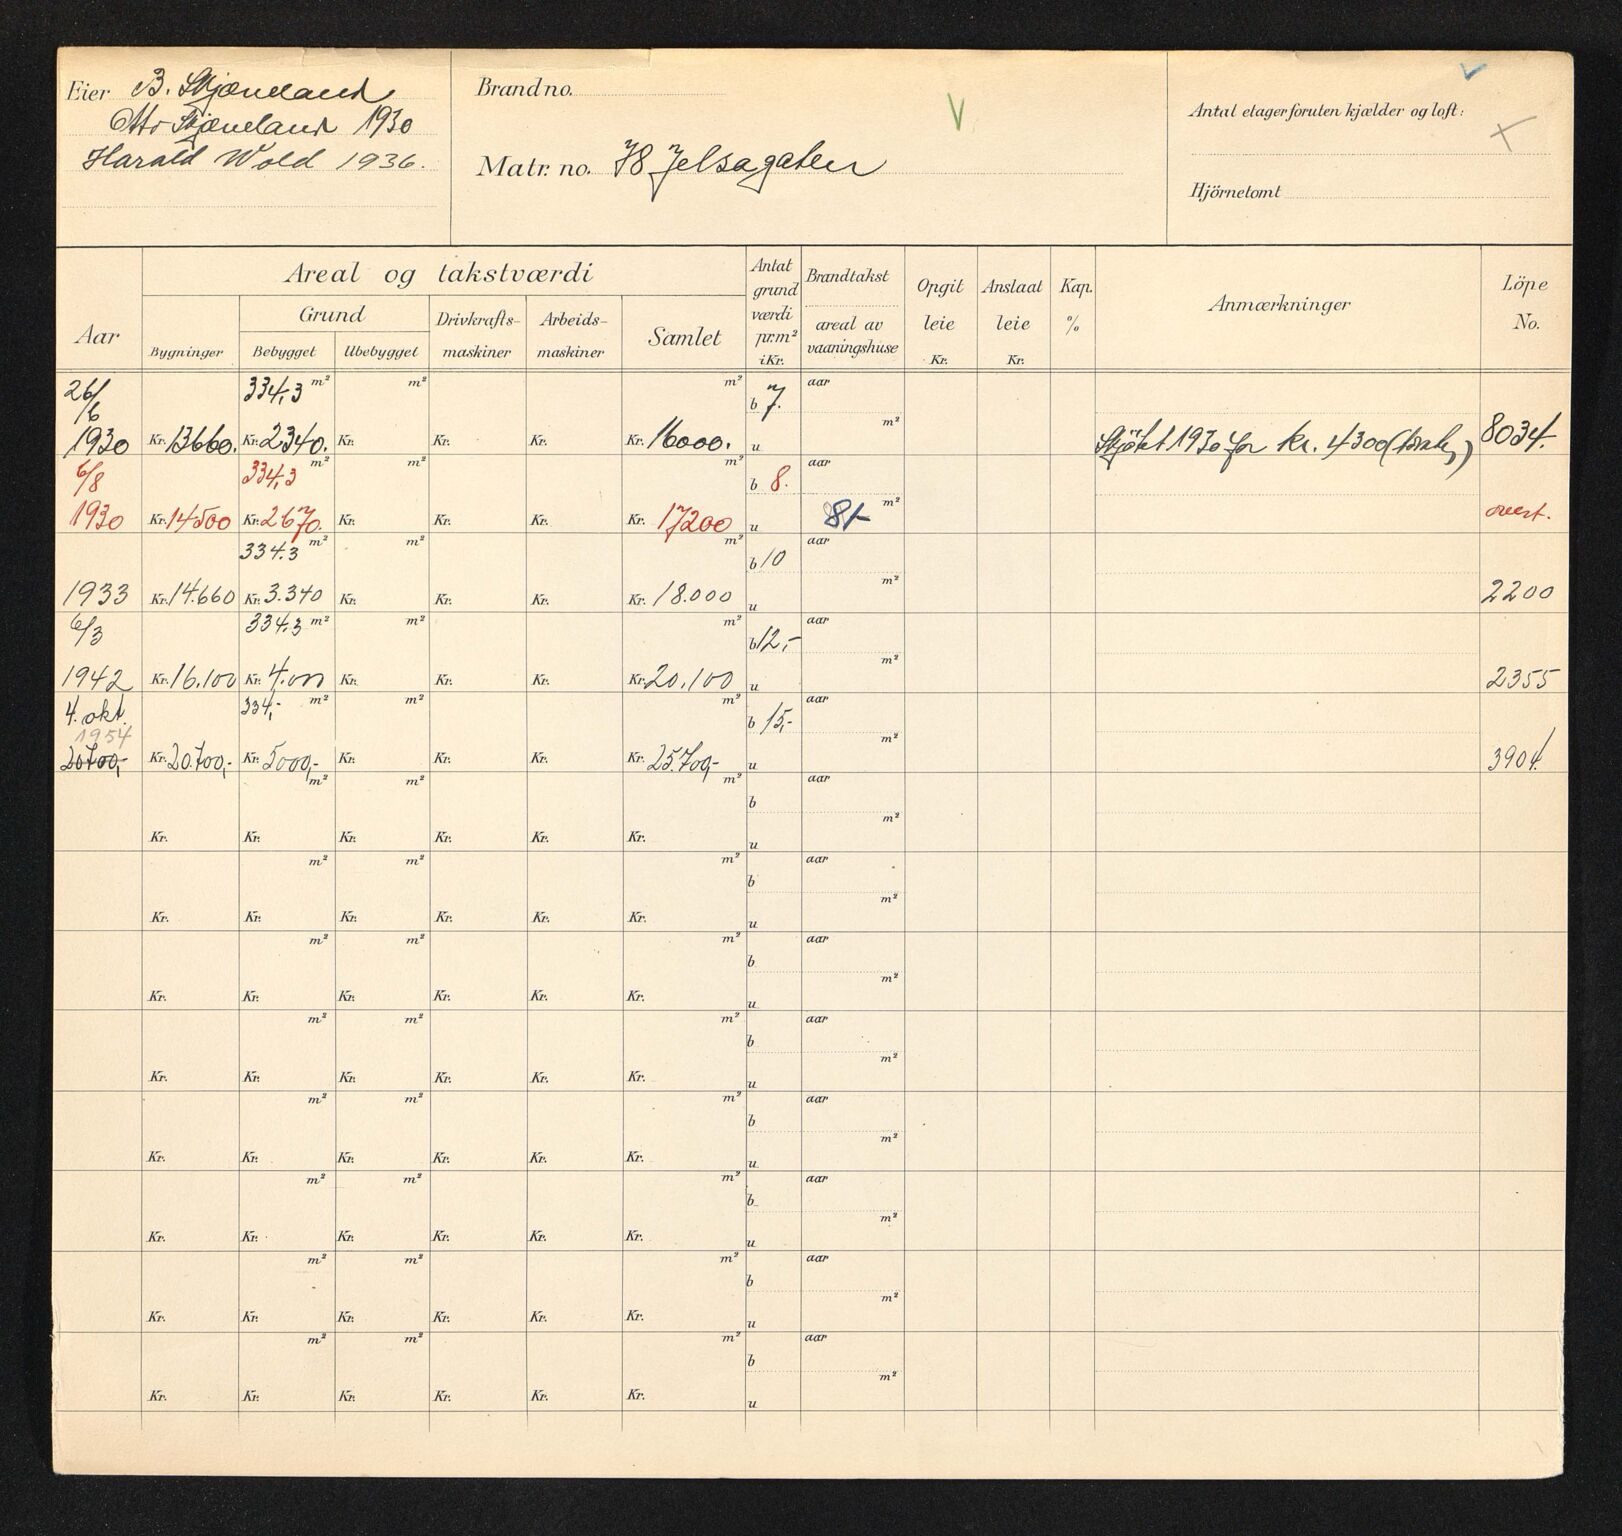 Eier B. Skjæveland
Otto Skjæveland 1930
Harald Wold 1936.
Brand no.
Matr. no. 78 Jelsagaten
V
Antal etager foruten kjælder og loft:
Hjörnetomt
Areal og takstværdi
Aar
Bygninger
Grund
Bebygget Ubebygget
Drivkrafts-
maskiner
Arbeids-
maskiner
Samlet
Antat
grund
værdi
pr. m²
i Kr.
Brandtakst
areal av
vaaningshuse
Opgit
leie
Kr.
Anslaat
leie
Kr.
Kap.
%
Anmærkninger
Löpe
No.
26/6 334,3 m² m² m² b 7. aar
m²
1930 Kr. 13660. Kr. 2340. Kr. Kr. Kr. Kr. 16000. u Skjötet 1930 for kr. 4300 8034.
6/8 334,3 m² m² m² b 8. aar
m²
1930 Kr. 14500 Kr. 2670. Kr. Kr. Kr. Kr. 17200 u 81 overt.
334.3 m² m² m² b 10 aar
m²
1933 Kr. 14.660 Kr. 3.340 Kr. Kr. Kr. Kr. 18.000 u 2200
6/3 334.3 m² m² m² b 12,- aar
m²
1942 Kr. 16.100 Kr. 4.000 Kr. Kr. Kr. Kr. 20.100 u 2355
4. okt. 334,- m² m² m² b 15,- aar
1954 m²
20700,- Kr. 20.700,- Kr. 5000,- Kr. Kr. Kr. Kr. 25.700,- u 3904
m² m² m² b aar
m²
Kr. Kr. Kr. Kr. Kr. Kr. u
m² m² m² b aar
m²
Kr. Kr. Kr. Kr. Kr. Kr. u
m² m² m² b aar
m²
Kr. Kr. Kr. Kr. Kr. Kr. u
m² m² m² b aar
m²
Kr. Kr. Kr. Kr. Kr. Kr. u
m² m² m² b aar
m²
Kr. Kr. Kr. Kr. Kr. Kr. u
m² m² m² b aar
m²
Kr. Kr. Kr. Kr. Kr. Kr. u
m² m² m² b aar
m²
Kr. Kr. Kr. Kr. Kr. Kr. u
m² m² m² b aar
m²
Kr. Kr. Kr. Kr. Kr. Kr. u